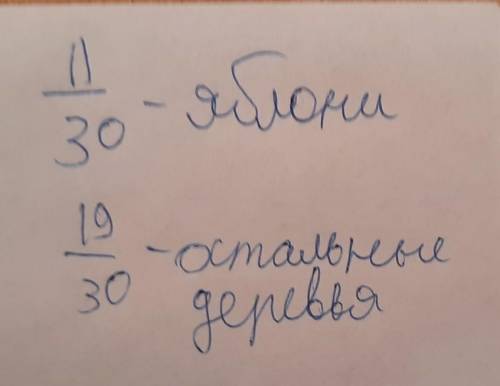 11/30 - яблони
19/30 - остальные
деревья